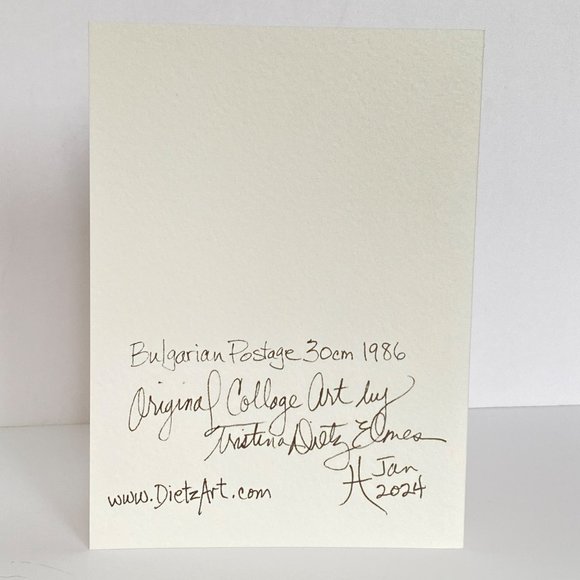 Bulgarian Postage 30cm 1986
Original Collage Art by
Tristina Dietz Elmes
Jan
www.DietzArt.com
2024